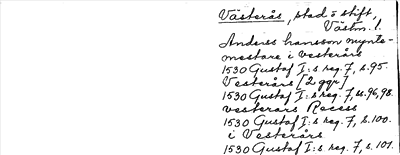 Västerås, stad o stift,
Västm. l.
Anders hansson mynte-
mestare i vesterårs
1530 Gustaf I:s reg. 7, s. 95.
Vesterårs [2 ggr]
1530 Gustaf I:s reg. 7, ss. 96, 98.
vesterars Recess
1530 Gustaf I:s reg. 7, s. 100.
i Vesterårs
1530 Gustaf I:s reg. 7, s. 101.